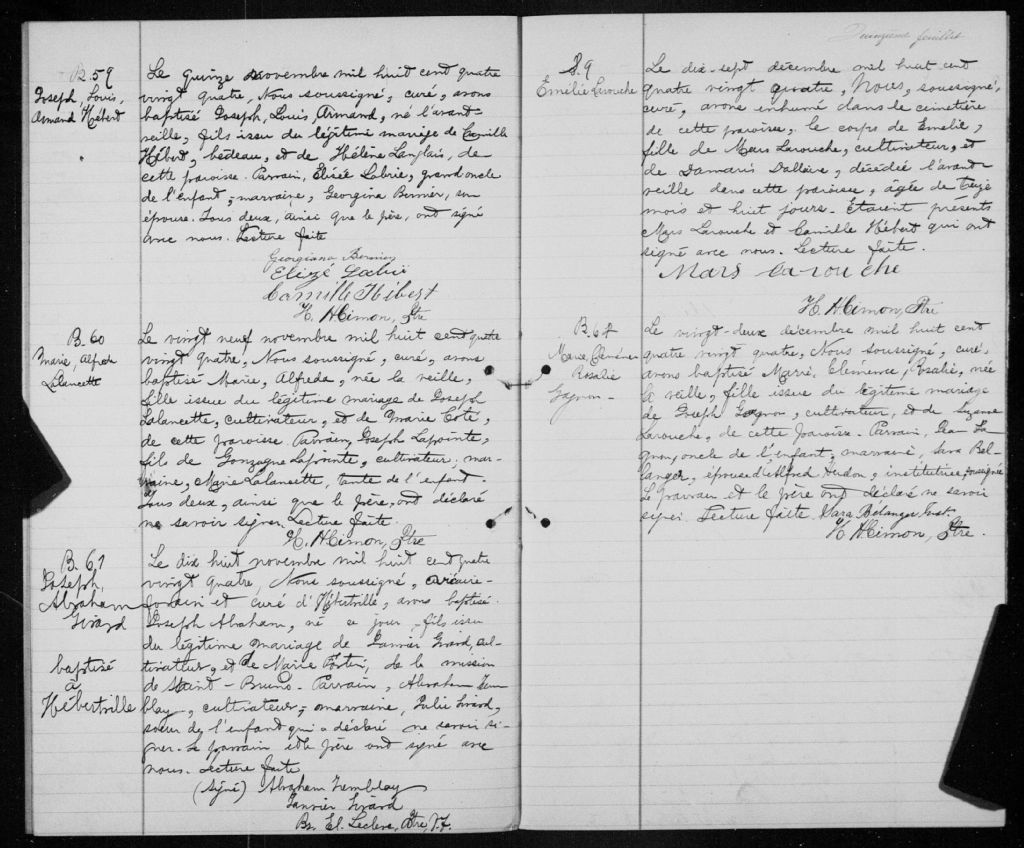 B. 59
Joseph, Louis,
Armand Hébert
Le quinze novembre mil huit cent quatre
vingt quatre, Nous soussigné, curé, avons
baptisé Joseph, Louis, Armand, né l'avant-
veille, fils issu du légitime mariage de Camille
Hébert, bedeau, et de Hélène Langlais, de
cette paroisse. Parrain, Elisée Labrie, grand oncle
de l'enfant; marraine, Georgina Bernier, son
épouse. Tous deux, ainsi que le père, ont signé
avec nous. Lecture faite
Georgiana Bernier
Camille Hébert
H. H. Cimon, Ptre
B. 60
Marie, Alfreda
Lalancette
Le vingt neuf novembre mil huit cent quatre
vingt quatre, Nous soussigné, curé, avons
baptisé Marie, Alfreda, née la veille,
fille issue du légitime mariage de Joseph
Lalancette, cultivateur, et de Marie Coté,
de cette paroisse. Parrain, Joseph Lapointe,
fils de Gonzague Lapointe, cultivateur; mar-
raine, Marie Lalancette, tante de l'enfant.
Tous deux, ainsi que le père, ont déclaré
ne savoir signer. Lecture faite.
H. H. Cimon, Ptre
B. 61
Joseph,
Abraham
Girard
baptisé
à
Hébertville
Le dix huit novembre mil huit cent quatre
vingt quatre, Nous soussigné, vicaire-
forain et curé d'Hébertville, avons baptisé
Joseph Abraham, né ce jour, fils issu
du légitime mariage de Janvier Girard, cul-
tivateur, et de Marie Fortin, de la mission
de Saint-Bruno. Parrain, Abraham Trem-
blay, cultivateur; marraine, Julie Girard,
soeur de l'enfant qui a déclaré ne savoir si-
gner. Le parrain et le père ont signé avec
nous. Lecture faite
(signé) Abraham Tremblay
Janvier Girard
Bz. El. Leclerc, Ptre, V.F.
Quinzième feuillet
S. 9
Emélie Larouche
Le dix-sept décembre mil huit cent
quatre vingt quatre, Nous, soussigné,
curé, avons inhumé dans le cimetière
de cette paroisse, le corps de Emélie,
fille de Mars Larouche, cultivateur, et
de Damaris Dallaire, décédée l'avant-
veille dans cette paroisse, âgée de treize
mois et huit jours. Etaient présents
Mars Larouche et Camille Hébert qui ont
signé avec nous. Lecture faite.
Mars Larouche
H. H. Cimon, Ptre
B. 62
Marie, Clémence
Rosalie
Gagnon
Le vingt-deux décembre mil huit cent
quatre vingt quatre, Nous soussigné, curé,
avons baptisé Marie, Clémence, Rosalie, née
la veille, fille issue du légitime mariage
de Joseph Gagnon, cultivateur, et de Suzanne
Larouche, de cette paroisse. Parrain, Jean
oncle de l'enfant; marraine, Sara Bél-
anger, épouse d'Alfred Hudon, institutrice, soussignée
Le parrain et le père ont déclaré ne savoir
signer. Lecture faite. Sara Bélanger Inst.
H. H. Cimon, Ptre.